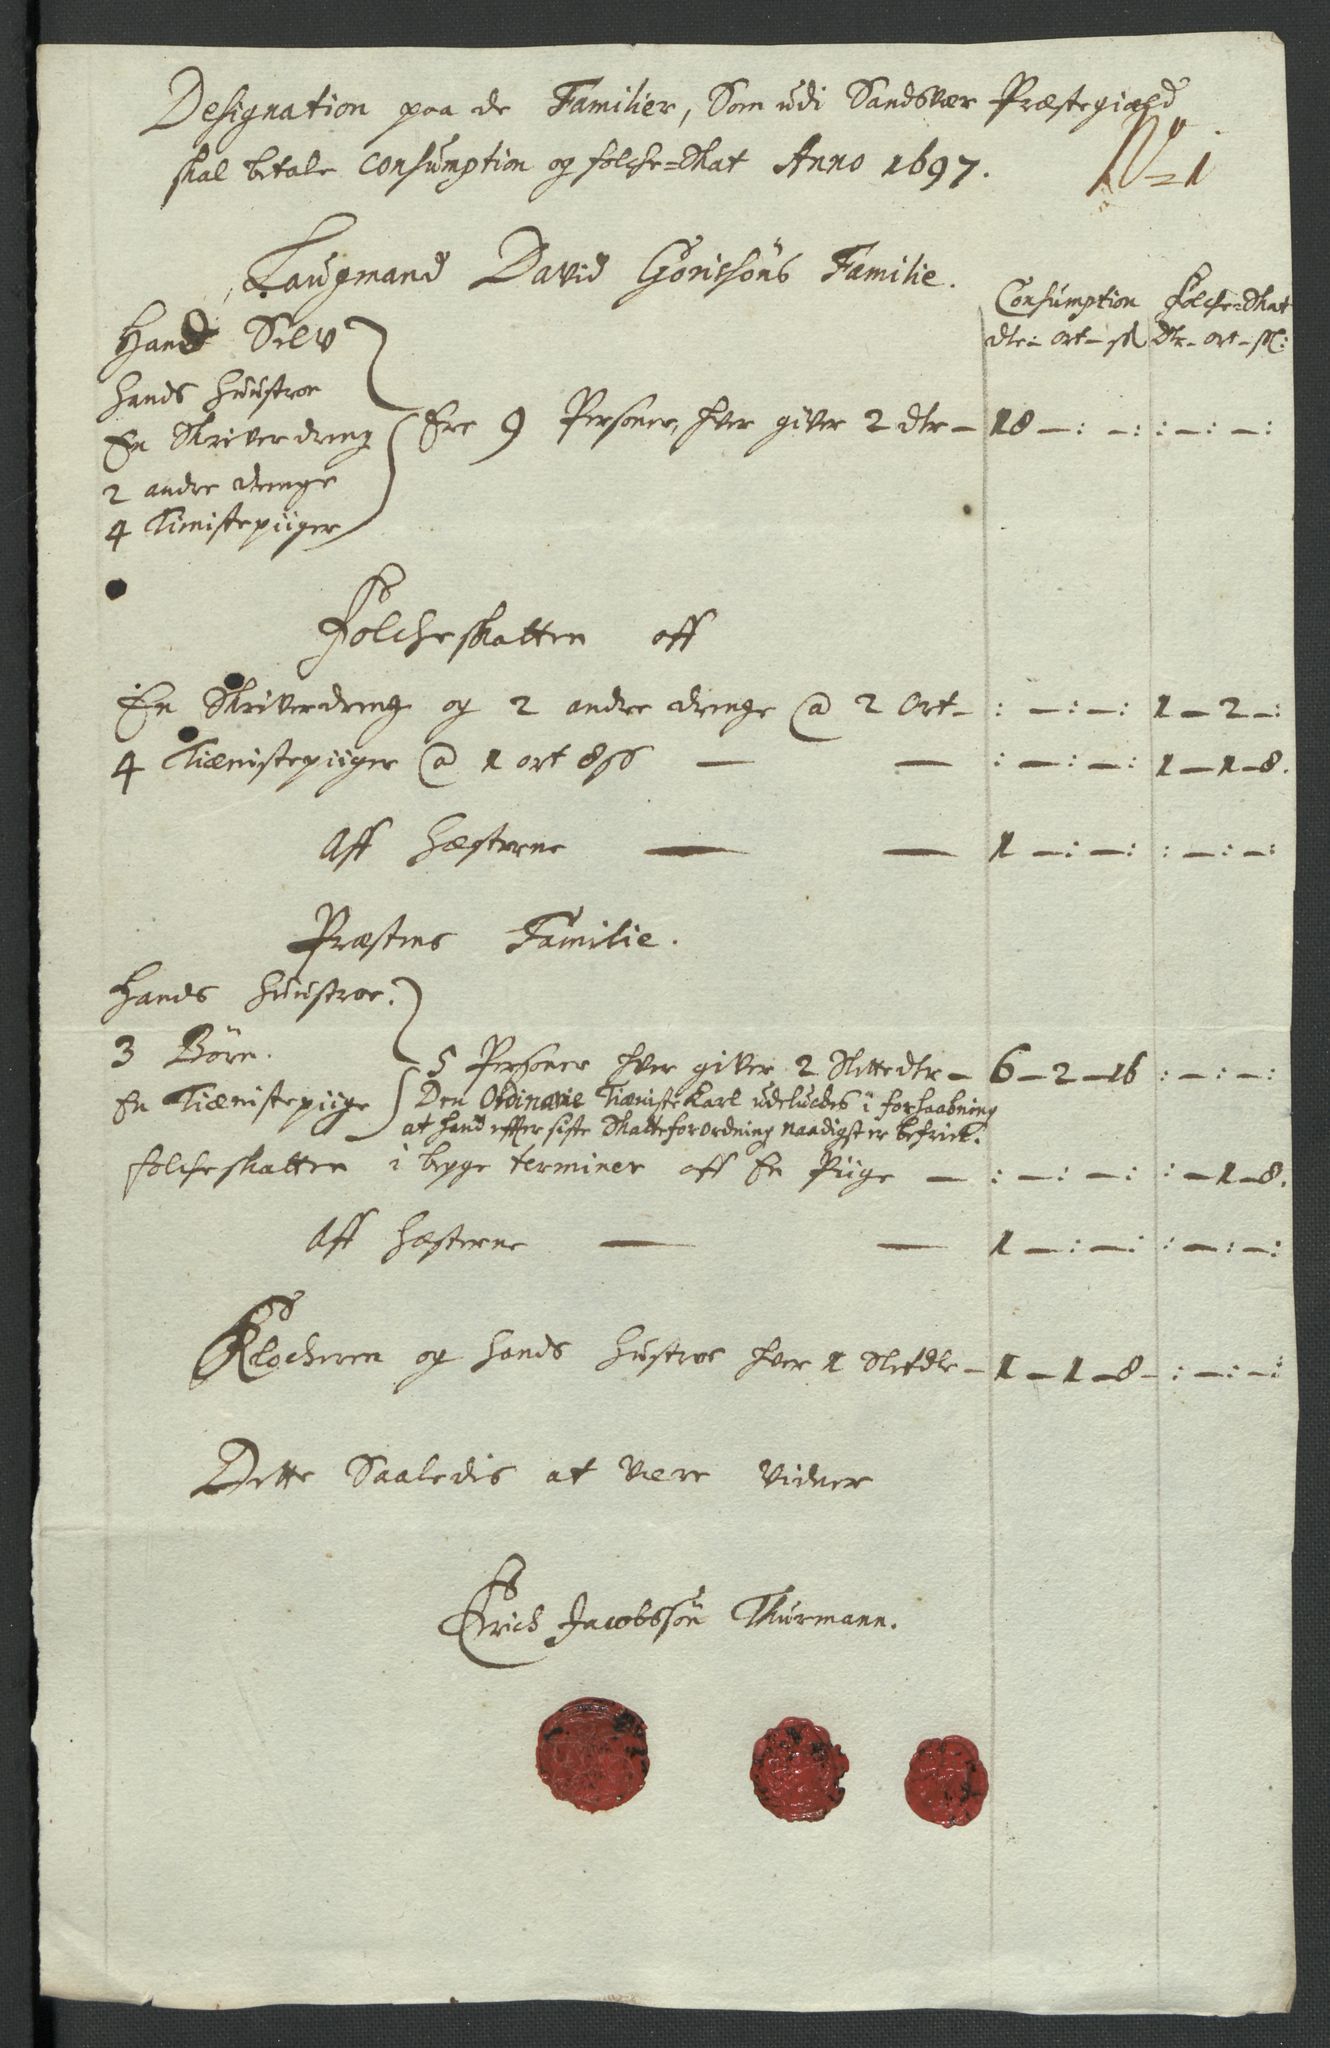 Designation paa de Familier, Som udi Sandsvær Præstegield
skal betale Consumption og folche=skat Anno 1697.
No=1
Laugmand David Görissöns Familie.
Consumption Folche=skat
dlr- ort- sk dlr- ort- sk:
Hand Selv
hands huustroe
En Skriverdreng
2 andre drenge
4 Tienistepiiger
Ere 9 Personer, hver giver 2 dlr – 18 –: –: : –: –:
Folcheskatten aff
En Skriverdreng og 2 andre drenge @ 2 Ort – : –: –: 1 – 2 –:
4 Tiænistepiiger @ 1 ort 8 sk — — : –: –: 1 – 1 – 8.
Aff Hæsterne — — 1 –: –: : –: –:
Præstens Familie.
Hands huustroe.
3 Börn.
En Tiænistepiige
5 Personer hver giver 2 Slettedlr – 6 – 2 – 16 : –: –:
Den Ordinarie Tiæniste Karl udeluches i forhaabning
at hand effter siste Skatteforordning naadigst er befriet.
folcheskatten i begge terminer aff En Piige – : –: –: : – 1 – 8.
Aff hæsterne — — 1 –: –: : –: –:
Klocheren og hands hustroe hver 1 Sletdlr – 1 – 1 – 8 – : –: –:
Dette Saaledis at være vidner
Erich Jacobssön Thurmann.